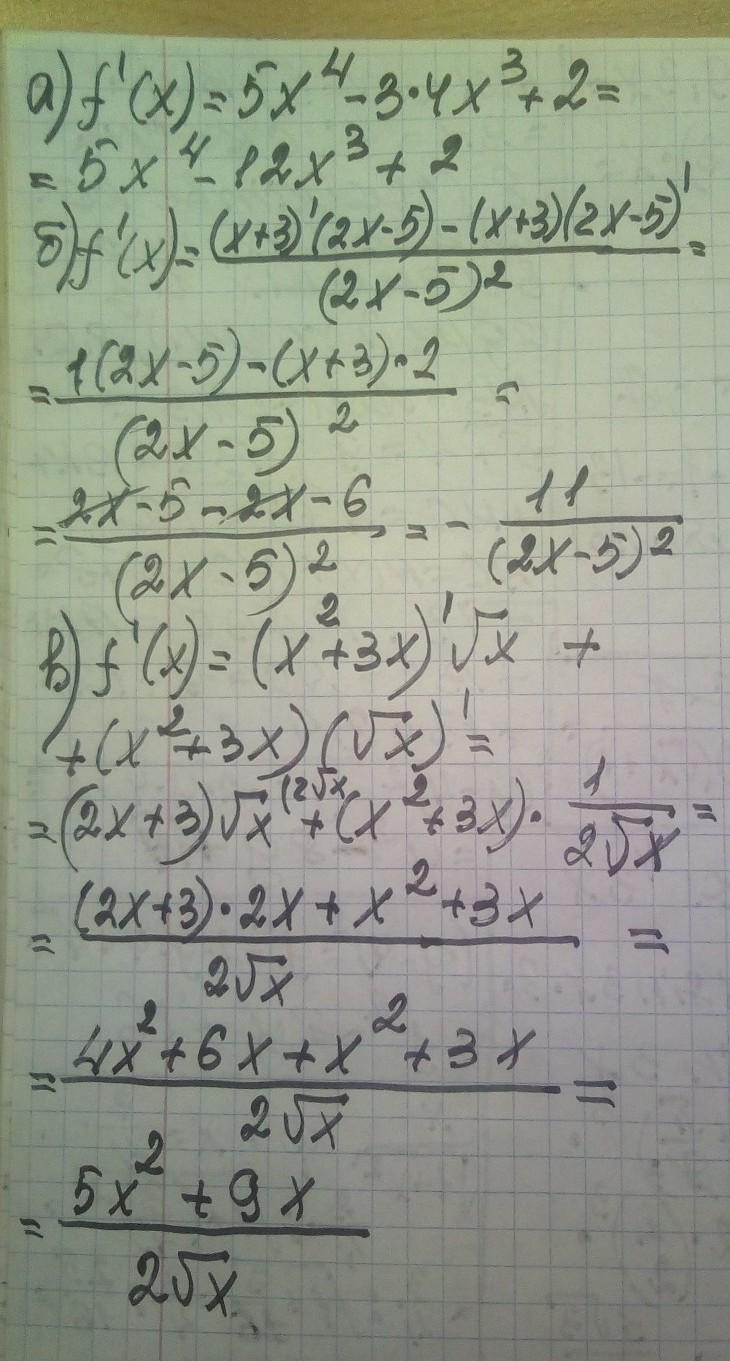 а) f'(x) = 5x⁴ - 3·4x³ + 2 =
= 5x⁴ - 12x³ + 2
б) f'(x) = ((x+3)'(2x-5) - (x+3)(2x-5)')/(2x-5)² =
= (1(2x-5) - (x+3)·2)/(2x-5)² =
= (2x-5-2x-6)/(2x-5)² = - 11/(2x-5)²
в) f'(x) = (x²+3x)'√x +
+ (x²+3x)(√x)' =
= (2x+3)√x (2√x + (x²+3x)· 1/(2√x) =
= ((2x+3)·2x + x² + 3x)/(2√x) =
= (4x² + 6x + x² + 3x)/(2√x) =
= (5x² + 9x)/(2√x)